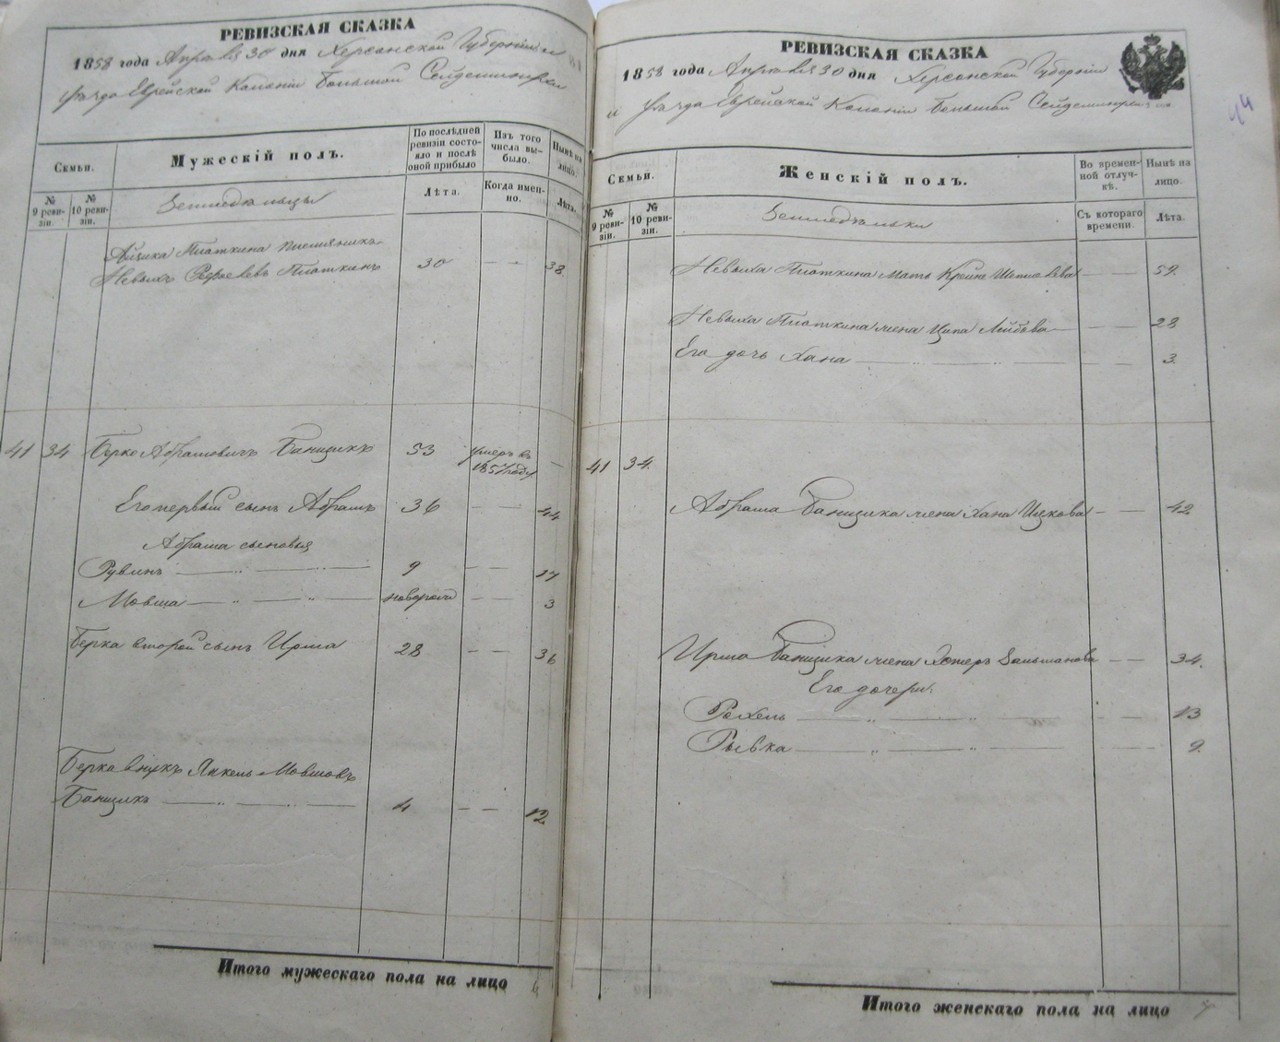 РЕВИЗСКАЯ СКАЗКА
1858 года Апреля 30 дня Херсонской Губерніи и
уѣзда Еврейской Колоніи Большой Сейдеминухи
Семьи.
Мужескій полъ.
По послѣдней ревизіи состояло и послѣ оной прибыло
Изъ того числа выбыло.
Нынѣ на лицо.
№ 9 ревизіи.
№ 10 ревизіи.
Земледѣльцы
Лѣта.
Когда именно.
Лѣта.
Айзика Пляткина племянникъ
Невыхъ Пляткинъ 30 — — 38
41 34 Берко Абрамовичъ Банщикъ 53 умеръ въ 1851 году —
Его первый сынъ Абрамъ 36 — — 44
Абрама сыновья
Рувинъ — „ — „ — 9 — — 17
Мовша — „ — „ — новорожд — — 3
Берка второй сынъ Ирша 28 — — 36
Берка внукъ Янкель Мовшовъ
Банщикъ — „ — „ — 4 — — 12
Итого мужескаго пола на лицо
РЕВИЗСКАЯ СКАЗКА
1858 года Апреля 30 дня Херсонской Губерніи
и уѣзда Еврейской Колоніи Большой Сейдеминухи
44
Семьи.
Женскій полъ.
Во временной отлучкѣ.
Нынѣ на лицо.
№ 9 ревизіи.
№ 10 ревизіи.
Земледѣльки
Съ котораго времени.
Лѣта.
Невыха Пляткина мать Крейна — — 59.
Невыха Пляткина жена Ципа Лейбова — — 28
Его дочь Хана — — — 3.
41 34.
Абрама Банщика жена Хана Ицкова — — 42
Ирша Банщика жена — — 34.
Его дочери:
Рохель — „ — „ — — — 13
Рывка — „ — „ — — — 9.
Итого женскаго пола на лицо 7